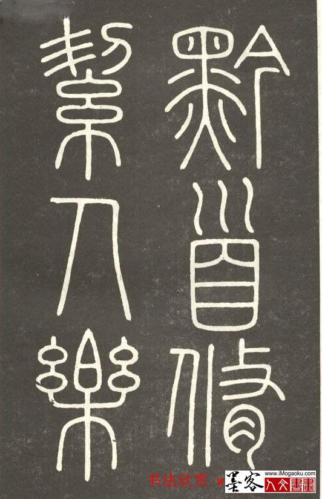 黔首脩
絜人樂
书法欣赏
墨客
www.iMogaoku.com